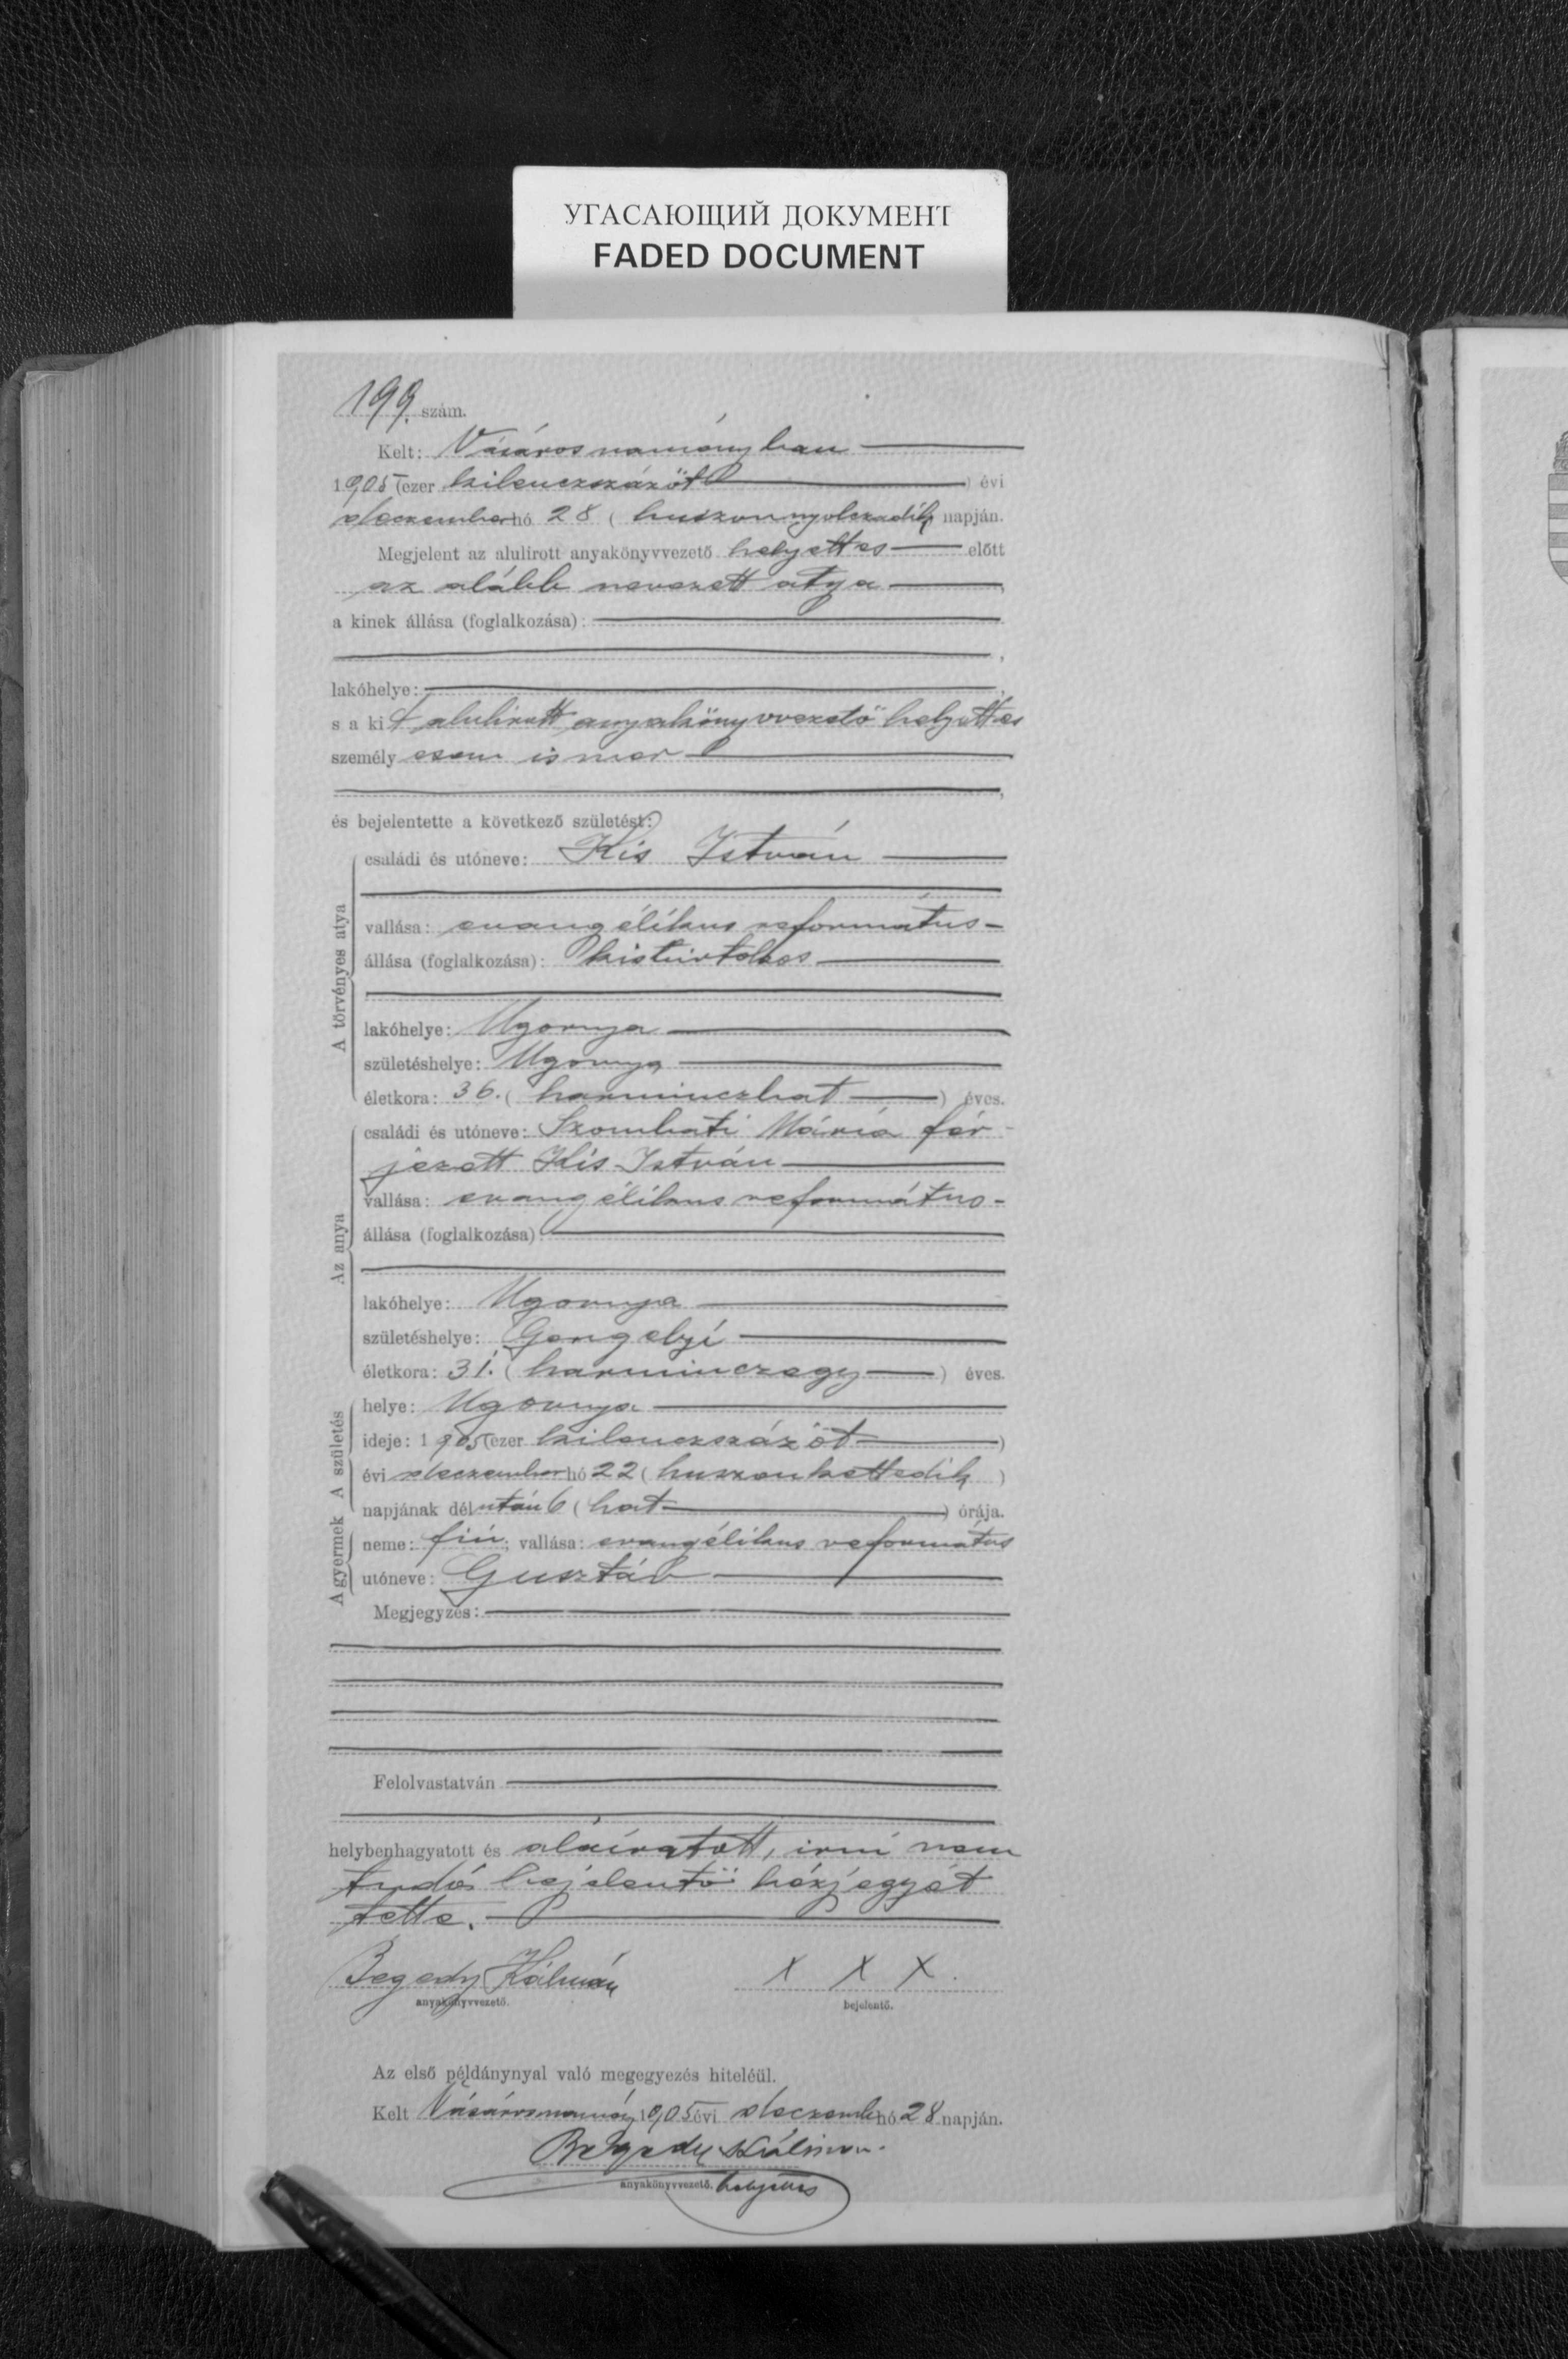 УГАСАЮЩИЙ ДОКУМЕНТ
FADED DOCUMENT
199. szám.
Kelt: Vásárosnaményban
1905 (ezer kilenczszázöt ) évi
deczember hó 28 ( huszonnyolczadik napján.
Megjelent az alulirott anyakönyvvezető helyettes előtt
az alább nevezett atya ,
a kinek állása (foglalkozása):
lakóhelye:
s a kit alulirott anyakönyvvezető helyettes
személyesen ismer
és bejelentette a következő születést:
A törvényes atya
családi és utóneve: Kis István
vallása: evangélikus református
állása (foglalkozása): kisbirtokos
lakóhelye: Ugornya
születéshelye: Ugornya
életkora: 36. ( harminczhat ) éves.
Az anya
családi és utóneve: Szombati Mária fér-
jezett Kis István
vallása: evangélikus református
állása (foglalkozása):
lakóhelye: Ugornya
születéshelye: Gergelyi
életkora: 31. ( harminczegy ) éves.
A születés
helye: Ugornya
ideje: 1905 (ezer kilenczszázöt )
évi deczember hó 22 ( huszonkettedik )
napjának délután 6 ( hat ) órája.
A gyermek
neme: fiú; vallása: evangélikus református
utóneve: Gusztáv
Megjegyzés:
Felolvastatván
helybenhagyatott és aláiratott, irni nem
tudó bejelentő kézjegyét
tette.
Begedy Kálmán X X X.
anyakönyvvezető. bejelentő.
Az első példánynyal való megegyezés hiteléül.
Kelt Vásárosnamény 1905 évi deczember hó 28 napján.
Begedy Kálmán
anyakönyvvezető. helyettes